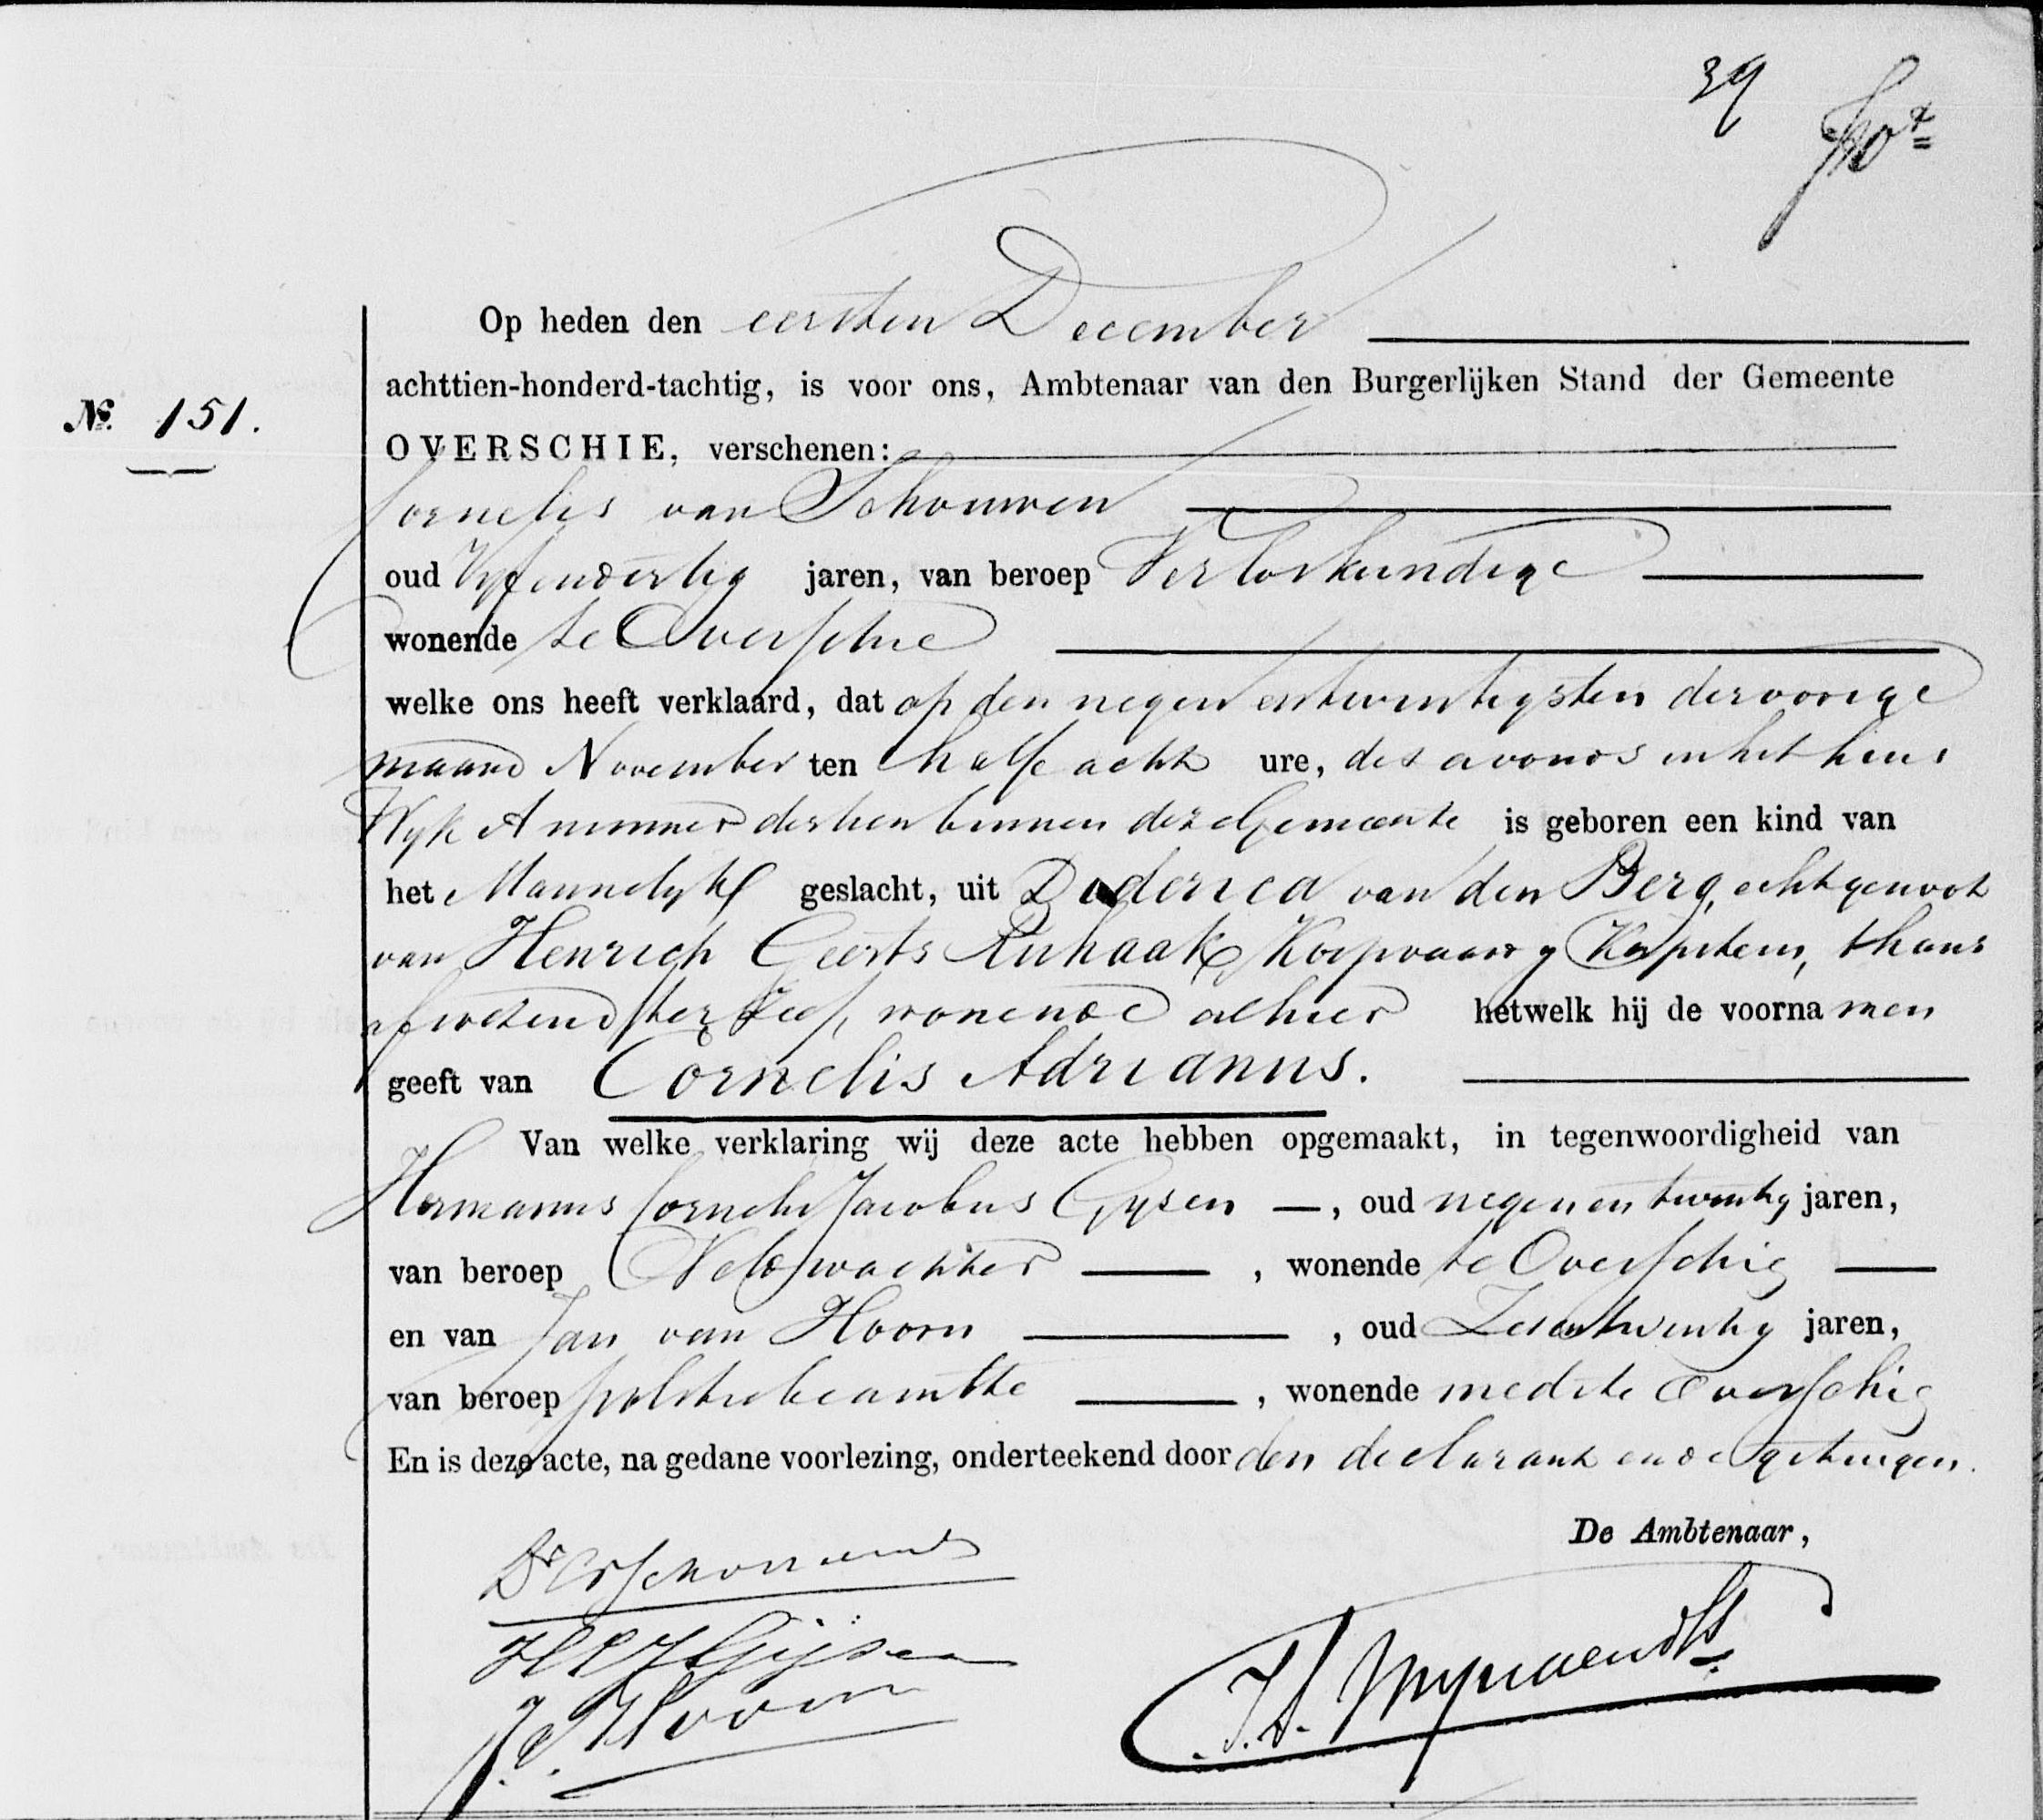 39
Op heden den eersten December
achttien-honderd-tachtig, is voor ons, Ambtenaar van den Burgerlijken Stand der Gemeente
Nº. 151.
OVERSCHIE, verschenen:
Cornelis van Schouwen
oud Vyfendertig jaren, van beroep Verloskundige
wonende te Overschie
welke ons heeft verklaard, dat op den negenentwintigsten der vorige
maand November ten half acht ure, des avonds in het huis
Wyk A nummer dertien binnen deze Gemeente is geboren een kind van
het Mannelyk geslacht, uit Doderica van den Berg, echtgenoot
van Henrich Geerts Anhaak, Koopvaardy Kapitein, thans
afwezend ter Zee, wonende alhier hetwelk hij de voornamen
geeft van Cornelis Adrianus.
Van welke verklaring wij deze acte hebben opgemaakt, in tegenwoordigheid van
Hermanus Cornelis Jacobus Gysen —, oud negenentwintig jaren,
van beroep Veldwachter, wonende te Overschie
en van Jan van Hoorn, oud Zesentwintig jaren,
van beroep politiebeambte, wonende mede te Overschie
En is deze acte, na gedane voorlezing, onderteekend door den declarant en de getuigen.
De Ambtenaar,
Dr C v Schouwen
H C J Gijsen
J. v. Hoorn